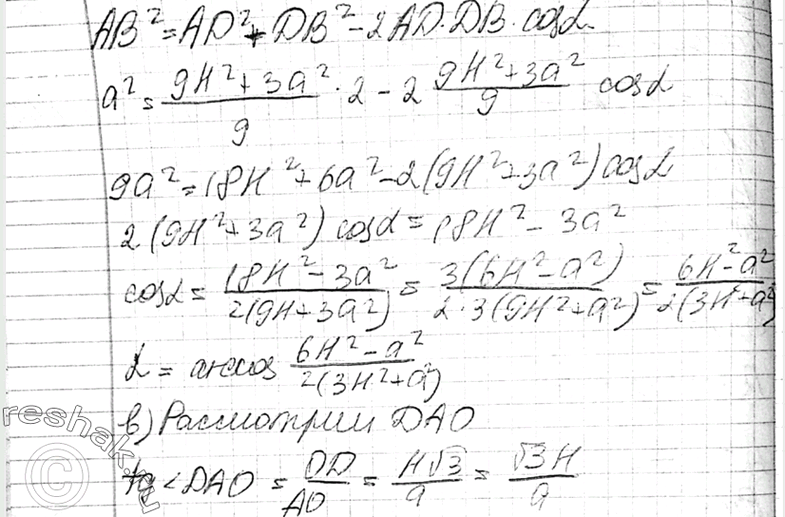 AB² = AD² + DB² - 2AD·DB·cosα
a² = (9H² + 3a²)/9 · 2 - 2 (9H² + 3a²)/9 cosα
9a² = 18H² + 6a² - 2(9H² + 3a²)cosα
2(9H² + 3a²)cosα = 18H² - 3a²
cosα = (18H² - 3a²)/(2(9H + 3a²)) = 3(6H² - a²)/(2·3(9H² + a²)) = (6H² - a²)/(2(3H² + a²)
α = arccos (6H² - a²)/(2(3H² + a²))
в) Рассмотрим DAO
tg <DAO = OD/AO = H√3/a = √3H/a
reshak.ru
©